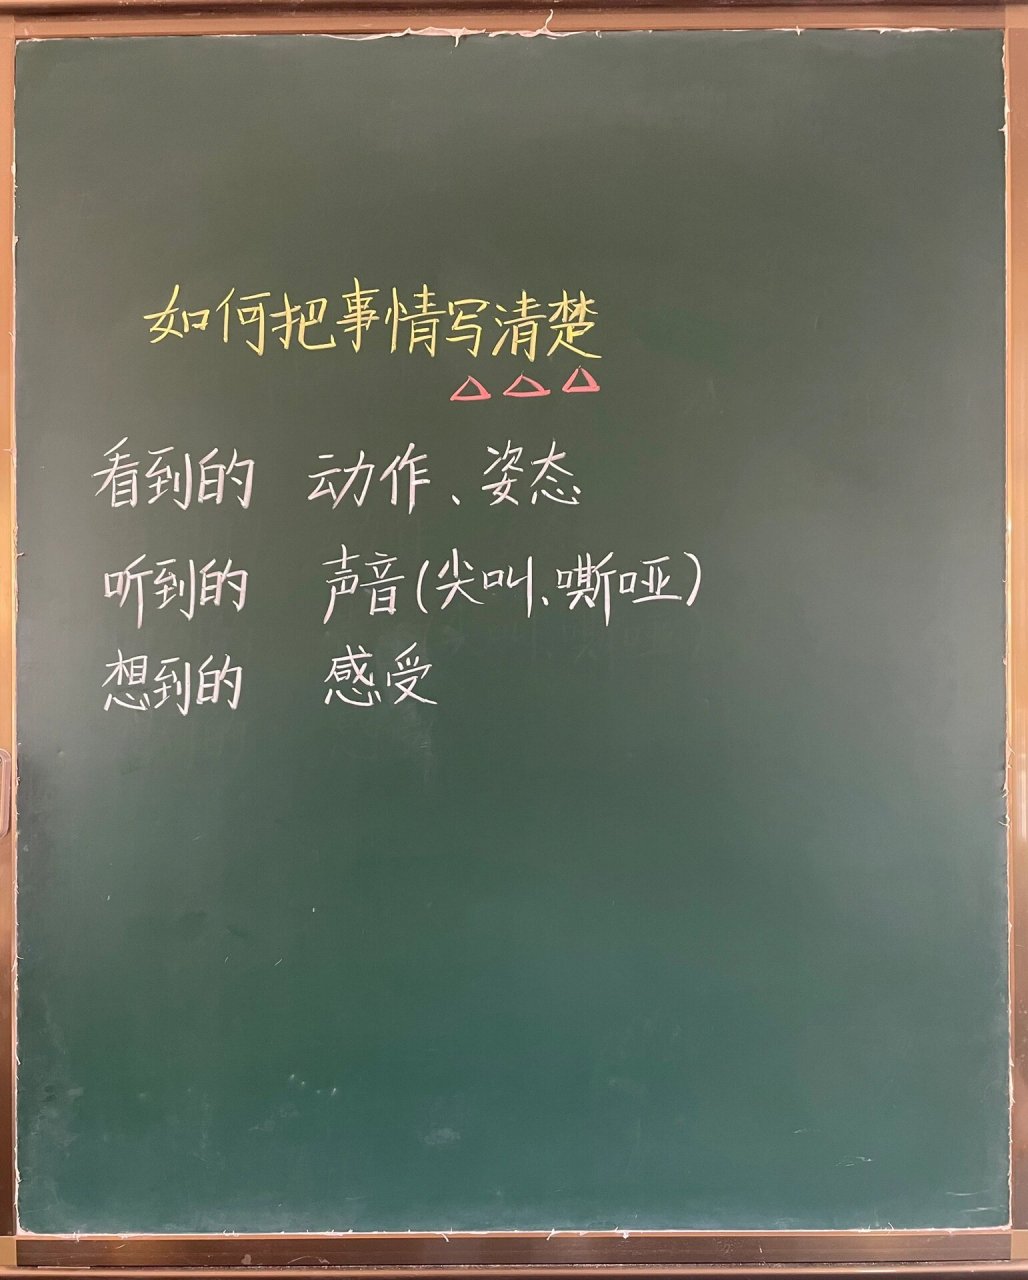 如何把事情写清楚
看到的 动作、姿态
听到的 声音(尖叫、嘶哑)
想到的 感受